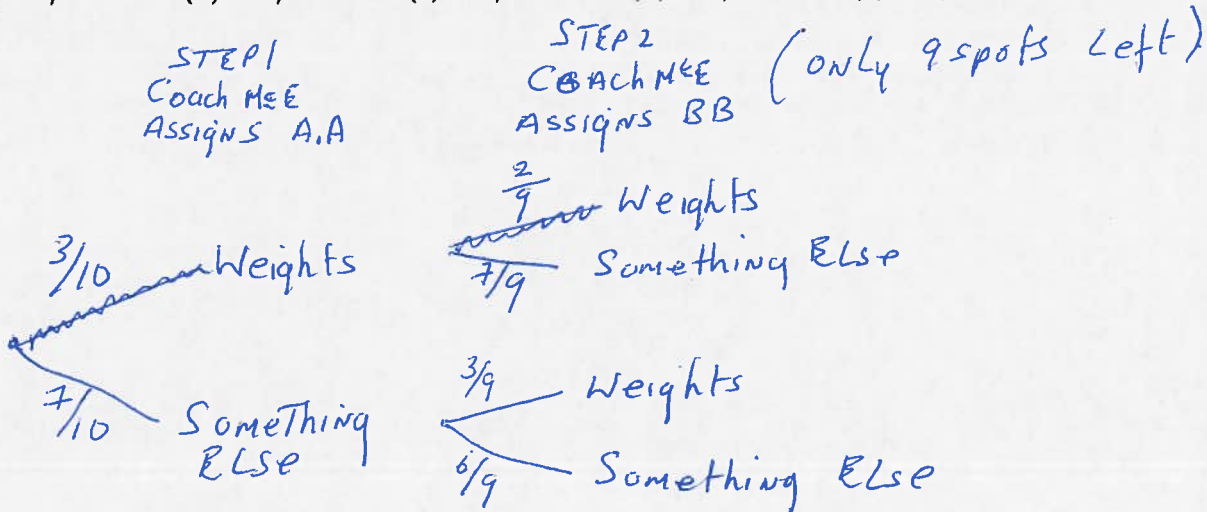 STEP 1
Coach McE
Assigns A.A
STEP 2
Coach McE
Assigns BB
(only 9 spots Left)
3/10
Weights
7/10
Something
Else
2/9
Weights
7/9
Something Else
3/9
Weights
6/9
Something Else